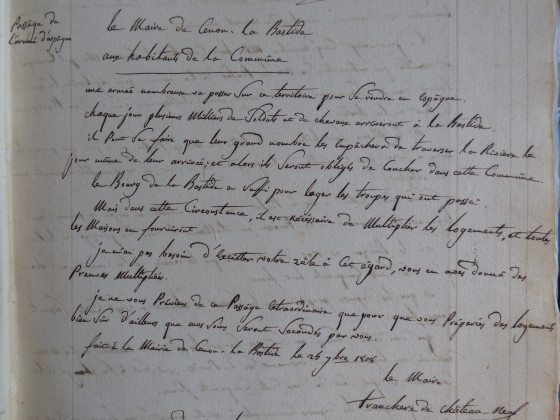 Passage de
l'armée d'espagne
le Maire de Cenon-la Bastide
aux habitants de la Commune
une armée nombreuse va passer sur ce territoire pour se rendre en Espagne.
chaque jour plusieurs Milliers de Soldats et de chevaux arriveront à la Bastide.
il Peut se faire que leur grand nombre les empêchera de traverser la Rivière le
jour même de leur arrivée; et alors ils seront obligés de Coucher dans cette Commune.
le Bourg de la Bastide a suffi pour loger les troupes qui ont passé.
Mais dans cette Circonstance, il est nécessaire de Multiplier les Logements, et toutes
les Maisons en fourniront.
je n'ai pas besoin d'Exciter votre zèle à Cet égard, vous en avés donné des
Preuves Multipliées.
je ne vous Préviens de ce Passage extraordinaire que pour que vous Prépariés des Logements
bien Sûr d'ailleurs que mes Soins Seront Secondés par vous.
fait à la Mairie de Cenon-la Bastide le 26 7bre 1808
le Maire
Tranchere de château-neuf